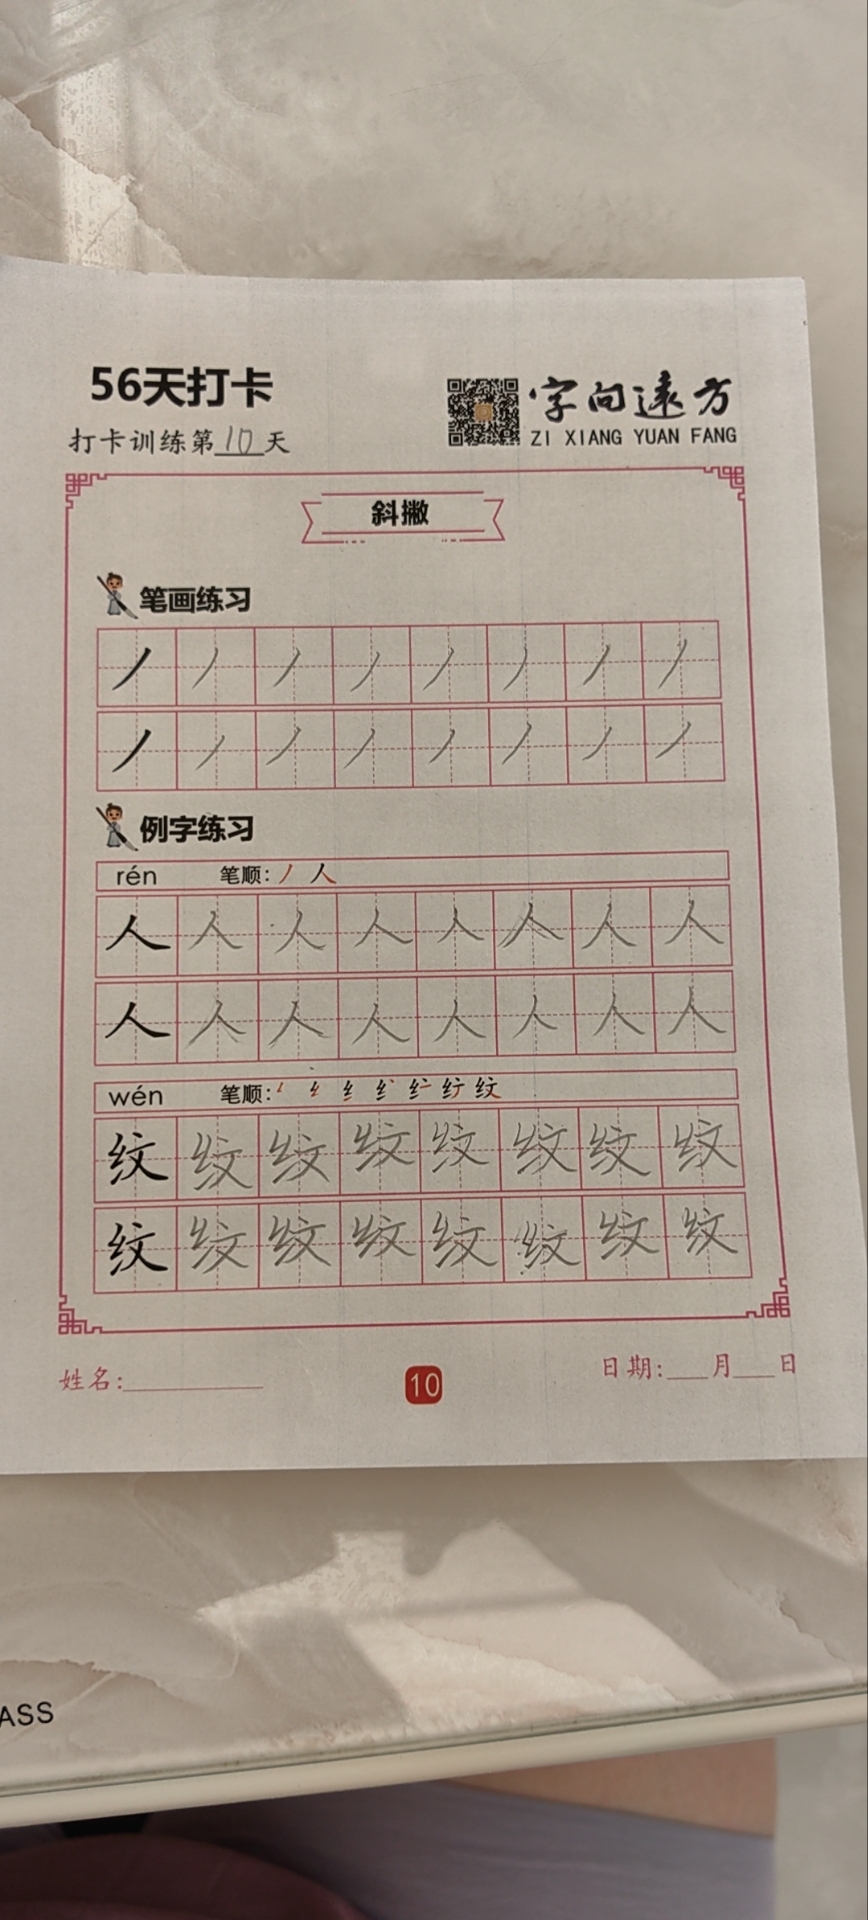 56天打卡
打卡训练第10天
字向遠方
ZI XIANG YUAN FANG
斜撇
笔画练习
丿 丿 丿 丿 丿 丿 丿 丿
丿 丿 丿 丿 丿 丿 丿 丿
例字练习
rén 笔顺: 丿 人
人 人 人 人 人 人 人 人
人 人 人 人 人 人 人 人
wén 笔顺: 纹
纹 纹 纹 纹 纹 纹 纹 纹
纹 纹 纹 纹 纹 纹 纹 纹
姓名:
10
日期: 月 日
ASS